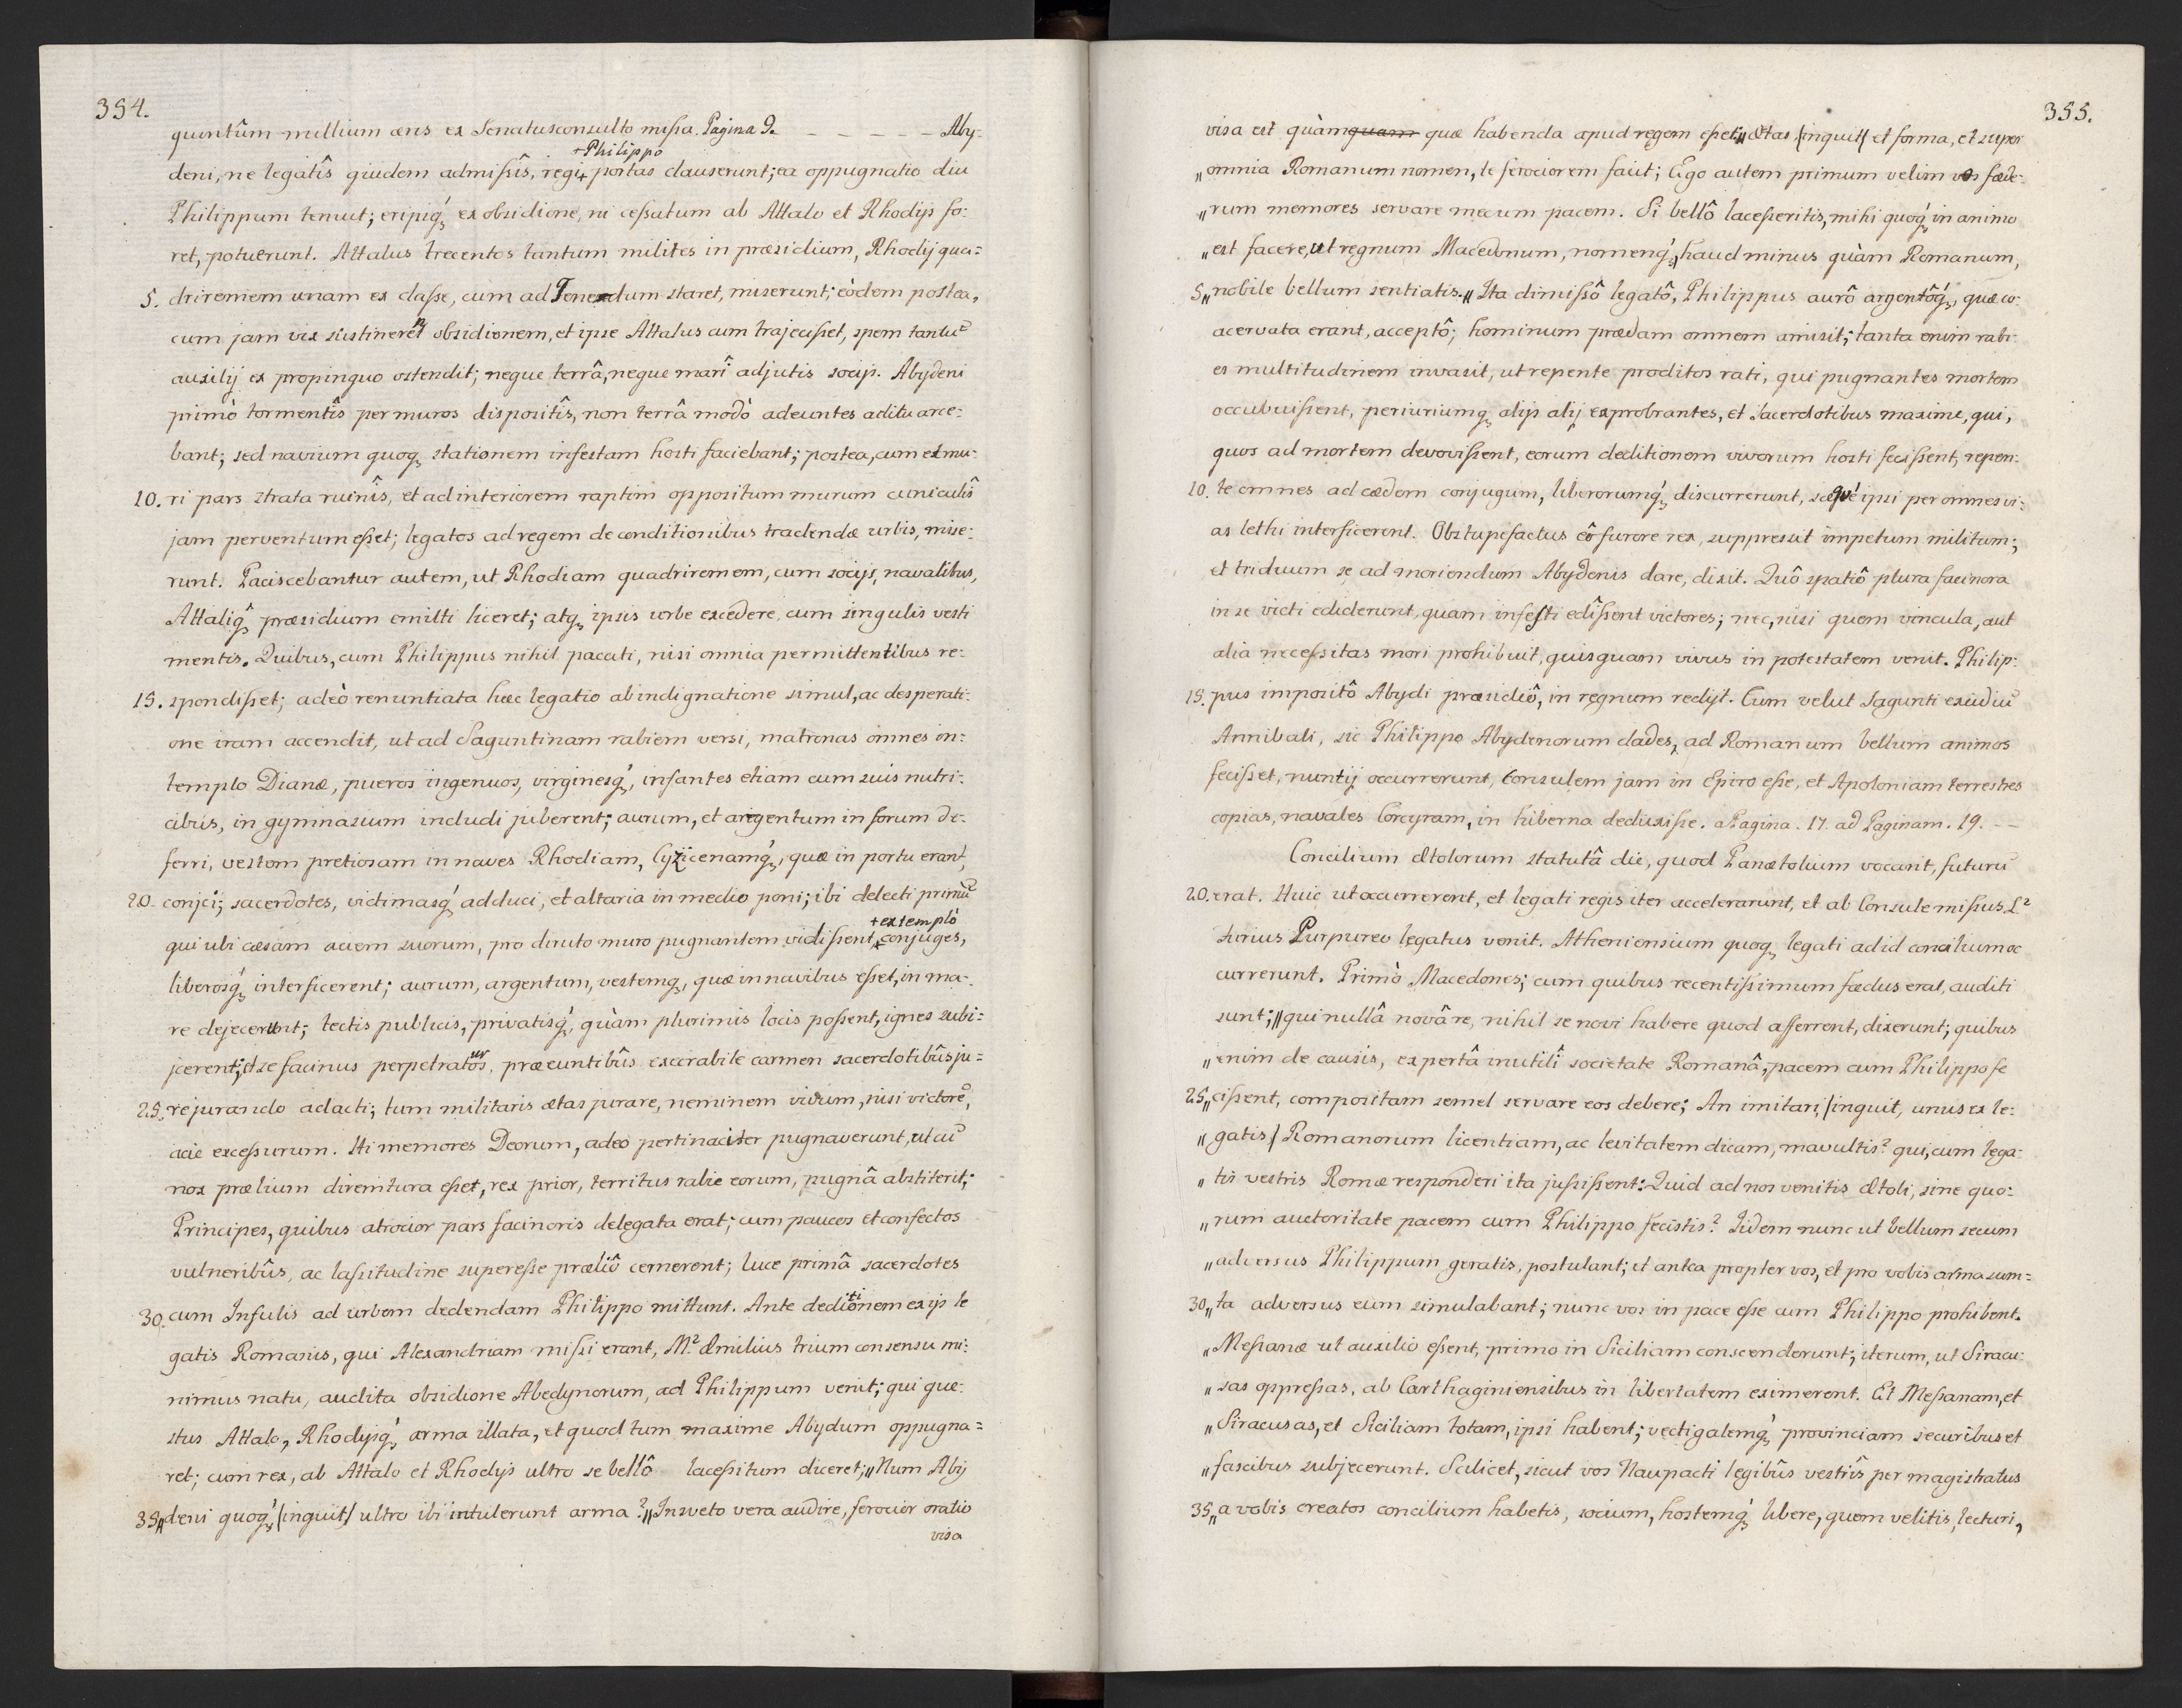 354.
quintûm millium æris ex Senatusconsulto missa. Pagina 9. – – – – – Aby-
+Philippo
deni, ne legatîs quidem admissîs, regi+ portas clauserunt; ea oppugnatio diu
Philippum tenuit; eripiq́ꝫ ex obsidione, ni cessatum ab Attalo et Rhodijs fo:
ret, potuêrunt. Attalus trecentos tantum milites in præsidium, Rhodij qua=
5. driremem unam ex classe, cum ad Tenedum staret, miserunt; eòdem postea,
cum jam vix sustinerent obsidionem, et ipse Attalus cum trajecisset, spem tantu᷑
auxilij ex propinquo ostendit; neque terrâ, neque marî adjutis socijs. Abydeni
primò tormentîs per muros dispositîs, non terrâ modò adeuntes aditu arce:
bant; sed navium quoqꝫ stationem infestam hosti faciebant; postea, cum et mu-
10. ri pars strata ruinîs, et ad interiorem raptim oppositum murum cuniculîs
jam perventum esset; legatos ad regem de conditionibus tradendæ urbis, mise:
runt. Paciscebantur autem, ut Rhodiam quadriremem, cum socijs navalibus,
Attaliq́ꝫ præsidium emitti liceret; atqꝫ ipsis urbe excedere, cum singulis vesti
mentis. Quibus, cum Philippus nihil pacati, nisi omnia permittentibus re:
15. spondisset; adeò renuntiata hæc legatio ab indignatione simul, ac desperati-
one iram accendit, ut ad Saguntinam rabiem versi, matronas omnes in-
templo Dianæ, pueros ingenuos, virginesq́ꝫ, infantes etiam cum suis nutri-
cibus, in gymnasium includi juberent; aurum, et argentum in forum de-
ferri, vestem pretiosam in naves Rhodiam, Cyzicenamq́ꝫ, quæ in portu erant,
20. conjci; sacerdotes, victimasq́ꝫ adduci, et altaria in medio poni; ibi delecti primu᷑
+extemplò
qui ubi cæsam aciem suorum, pro diruto muro pugnantem vidissent+ conjuges,
liberosq́ꝫ interficerent; aurum, argentum, vestemqꝫ, quæ in navibus esset, in ma-
re dejecerent; tectis publicis, privatisq́ꝫ, quàm plurimis locis possent, ignes subi=
jcerent; et se facinus perpetraturos, præeuntibûs execrabile carmen sacerdotibûs ju=
25. rejurando adacti; tum militaris ætas jurare, neminem vivum, nisi victore᷑,
acie excessurum. Hi memores Deorum, adeò pertinaciter pugnaverunt, ut cu᷑
nox prælium diremtura esset, rex prior, territus rabie eorum, pugnâ abstiterit;
Principes, quibus atrocior pars facinoris delegata erat; cum paucos et confectos
vulneribûs, ac lassitudine superesse præliô cernerent; luce primâ sacerdotes
30. cum Infulis ad urbem dedendam Philippo mittunt. Ante deditionem ex ijs le
gatis Romanis, qui Alexandriam missi erant, M.² Æmilius trium consensu mi:
nimus natu, audita obsidione Abedynorum, ad Philippum venit; qui que:
stus Attalo, Rhodijsq́ꝫ arma illata, et quod tum maxime Abydum oppugna=
ret; cum rex, ab Attalo et Rhodijs ultro se bellô lacessitum diceret; „Num Aby
35„deni quoq́ꝫ, (inquit) ultro ibi intulerunt arma? „Insveto vera audire, ferocior oratio
visa
355.
visa est quàmquam quæ habenda apud regem esset; „Ætas (inquit) et forma, et super
„omnia Romanum nomen, te ferociorem facit; Ego autem primum velim vos fæde-
„rum memores servare mecum pacem. Si bellô lacesseritis, mihi quoq́ꝫ in animo
„est facere, ut regnum Macedonum, nomenq́ꝫ, haud minus quàm Romanum,
5„nobile bellum sentiatis. „Ita dimissô legatô, Philippus aurô argentôq́ꝫ, quæ co-
acervata erant, acceptô; hominum prædam omnem amisit; tanta enim rabi-
es multitudinem invasit, ut repente proditos rati, qui pugnantes mortem
occubuissent, periuriumqꝫ alijs alij exprobrantes, et Sacerdotibus maxime, qui,
quos ad mortem devovissent, eorum deditionem vivorum hosti fecissent, repen:
10. te omnes ad cædem conjugum, liberorumq́ꝫ discurrerunt, seq́uè ipsi per omnes vi:
as lethi interficerent. Obstupefactus eô furore rex, suppressit impetum militum;
et triduum se ad moriendum Abydenis dare, dixit. Quô spatiô plura facinora
in se victi ediderunt, quam infesti edîssent victores; nec, nisi quem vincula, aut
alia necessitas mori prohibuit, quisquam vivus in potestatem venit. Philip:
15. pus impositô Abydi præsidiô, in regnum redijt. Cum velut Sagunti exidiu᷑
Annibali, sic Philippo Abydenorum clades, ad Romanum bellum animos
fecisset, nuntij occurrerunt, Consulem jam in Epiro esse, et Apoloniam terrestres
copias, navales Corcyram, in hiberna deduxisse. a Pagina. 17. ad Paginam. 19. – –
Concilium Ætolorum statutâ die, quod Panætolium vocant, futuru᷑
20. erat. Huic ut occurrerent, et legati regis iter accelerarunt, et ab Consule missus L²
Furius Purpureo legatus venit. Atheniensium quoqꝫ legati ad id concilium oc
currerunt. Primò Macedones; cum quibus recentissimum fædus erat, auditi
sunt; „qui nullâ novâ re, nihil se novi habere quod afferrent, dixerunt; quibus
„enim de causis, expertâ inutilî societate Romanâ, pacem cum Philippo fe
25„cissent, compositam semel servare eos debere; An imitari, (inquit, unus ex le:
„gatis) Romanorum licentiam, ac levitatem dicam, mavultis? qui, cum lega-
„tis vestris Romæ responderi ita jussissent: Quid ad nos venitis Ætoli, sine quo:
„rum auctoritate pacem cum Philippo fecistis? Iidem nunc ut bellum secum
„adversus Philippum geratis, postulant; et antea propter vos, et pro vobis arma sum=
30„ta adversus eum simulabant; nunc vos in pace esse cum Philippo prohibent.
„Messanæ ut auxilio essent, primo in Siciliam conscenderunt; iterum, ut Siracu:
„sas oppressas, ab Carthaginiensibus in libertatem eximerent. Et Messanam, et
„Siracusas, et Siciliam totam, ipsi habent; vectigalemq́ꝫ provinciam securibus et
„fascibus subjecerunt. Scilicet, sicut vos Naupacti legibûs vestrîs per magistratus
35„a vobis creatos concilium habetis, socium, hostemq́ꝫ libere, quem velitis, lecturi,